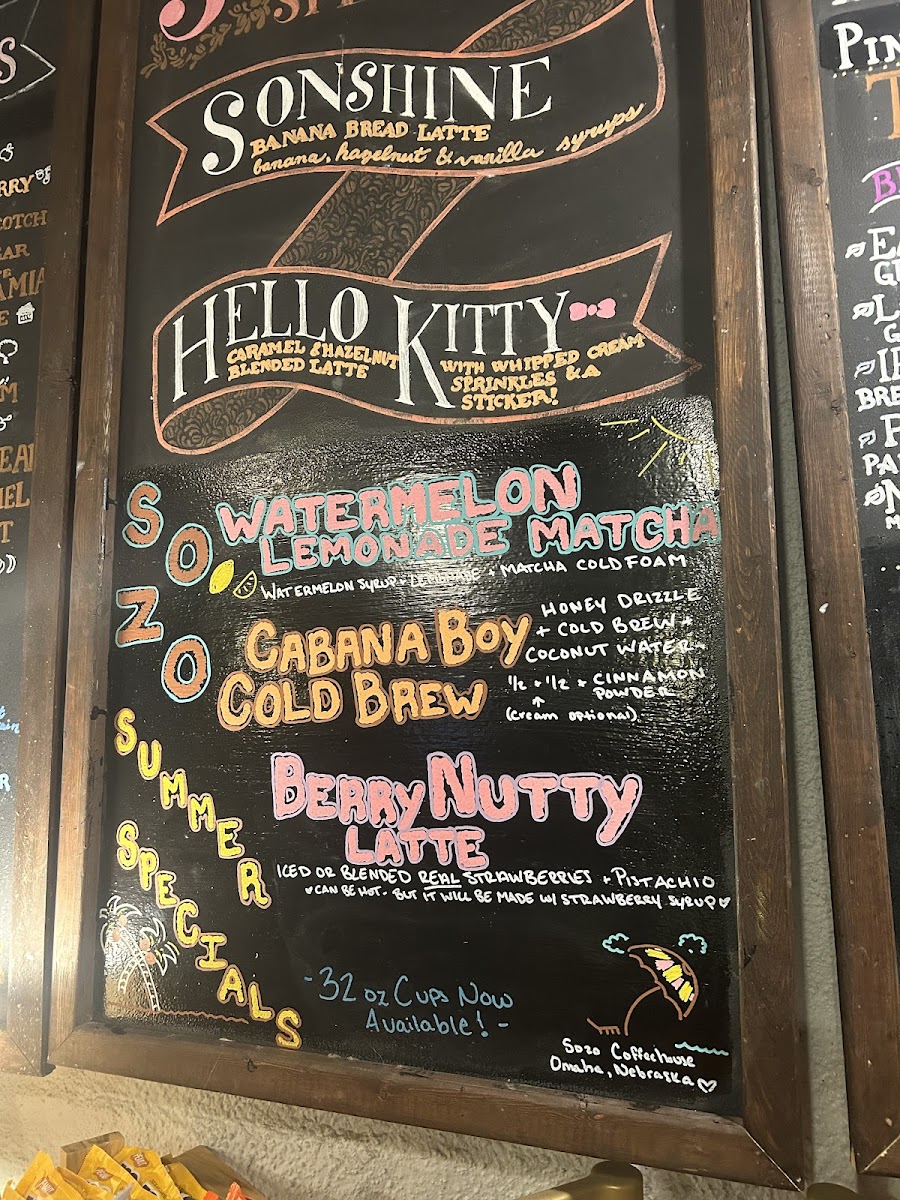 SONSHINE
BANANA BREAD LATTE
banana, hazelnut & vanilla syrups
HELLO KITTY
CARAMEL & HAZELNUT
BLENDED LATTE
WITH WHIPPED CREAM
SPRINKLES & A
STICKER!
SOZO
SUMMER
SPECIALS
WATERMELON
LEMONADE MATCHA
WATERMELON SYRUP + LEMONADE + MATCHA COLD FOAM
CABANA BOY
COLD BREW
HONEY DRIZZLE
+ COLD BREW +
COCONUT WATER
1/2 + 1/2 + CINNAMON
POWDER
(cream optional)
BERRY NUTTY
LATTE
ICED OR BLENDED REAL STRAWBERRIES + PISTACHIO
CAN BE HOT - BUT IT WILL BE MADE W/ STRAWBERRY SYRUP
-32 oz Cups Now
Available!-
Sozo Coffeehouse
Omaha, Nebraska